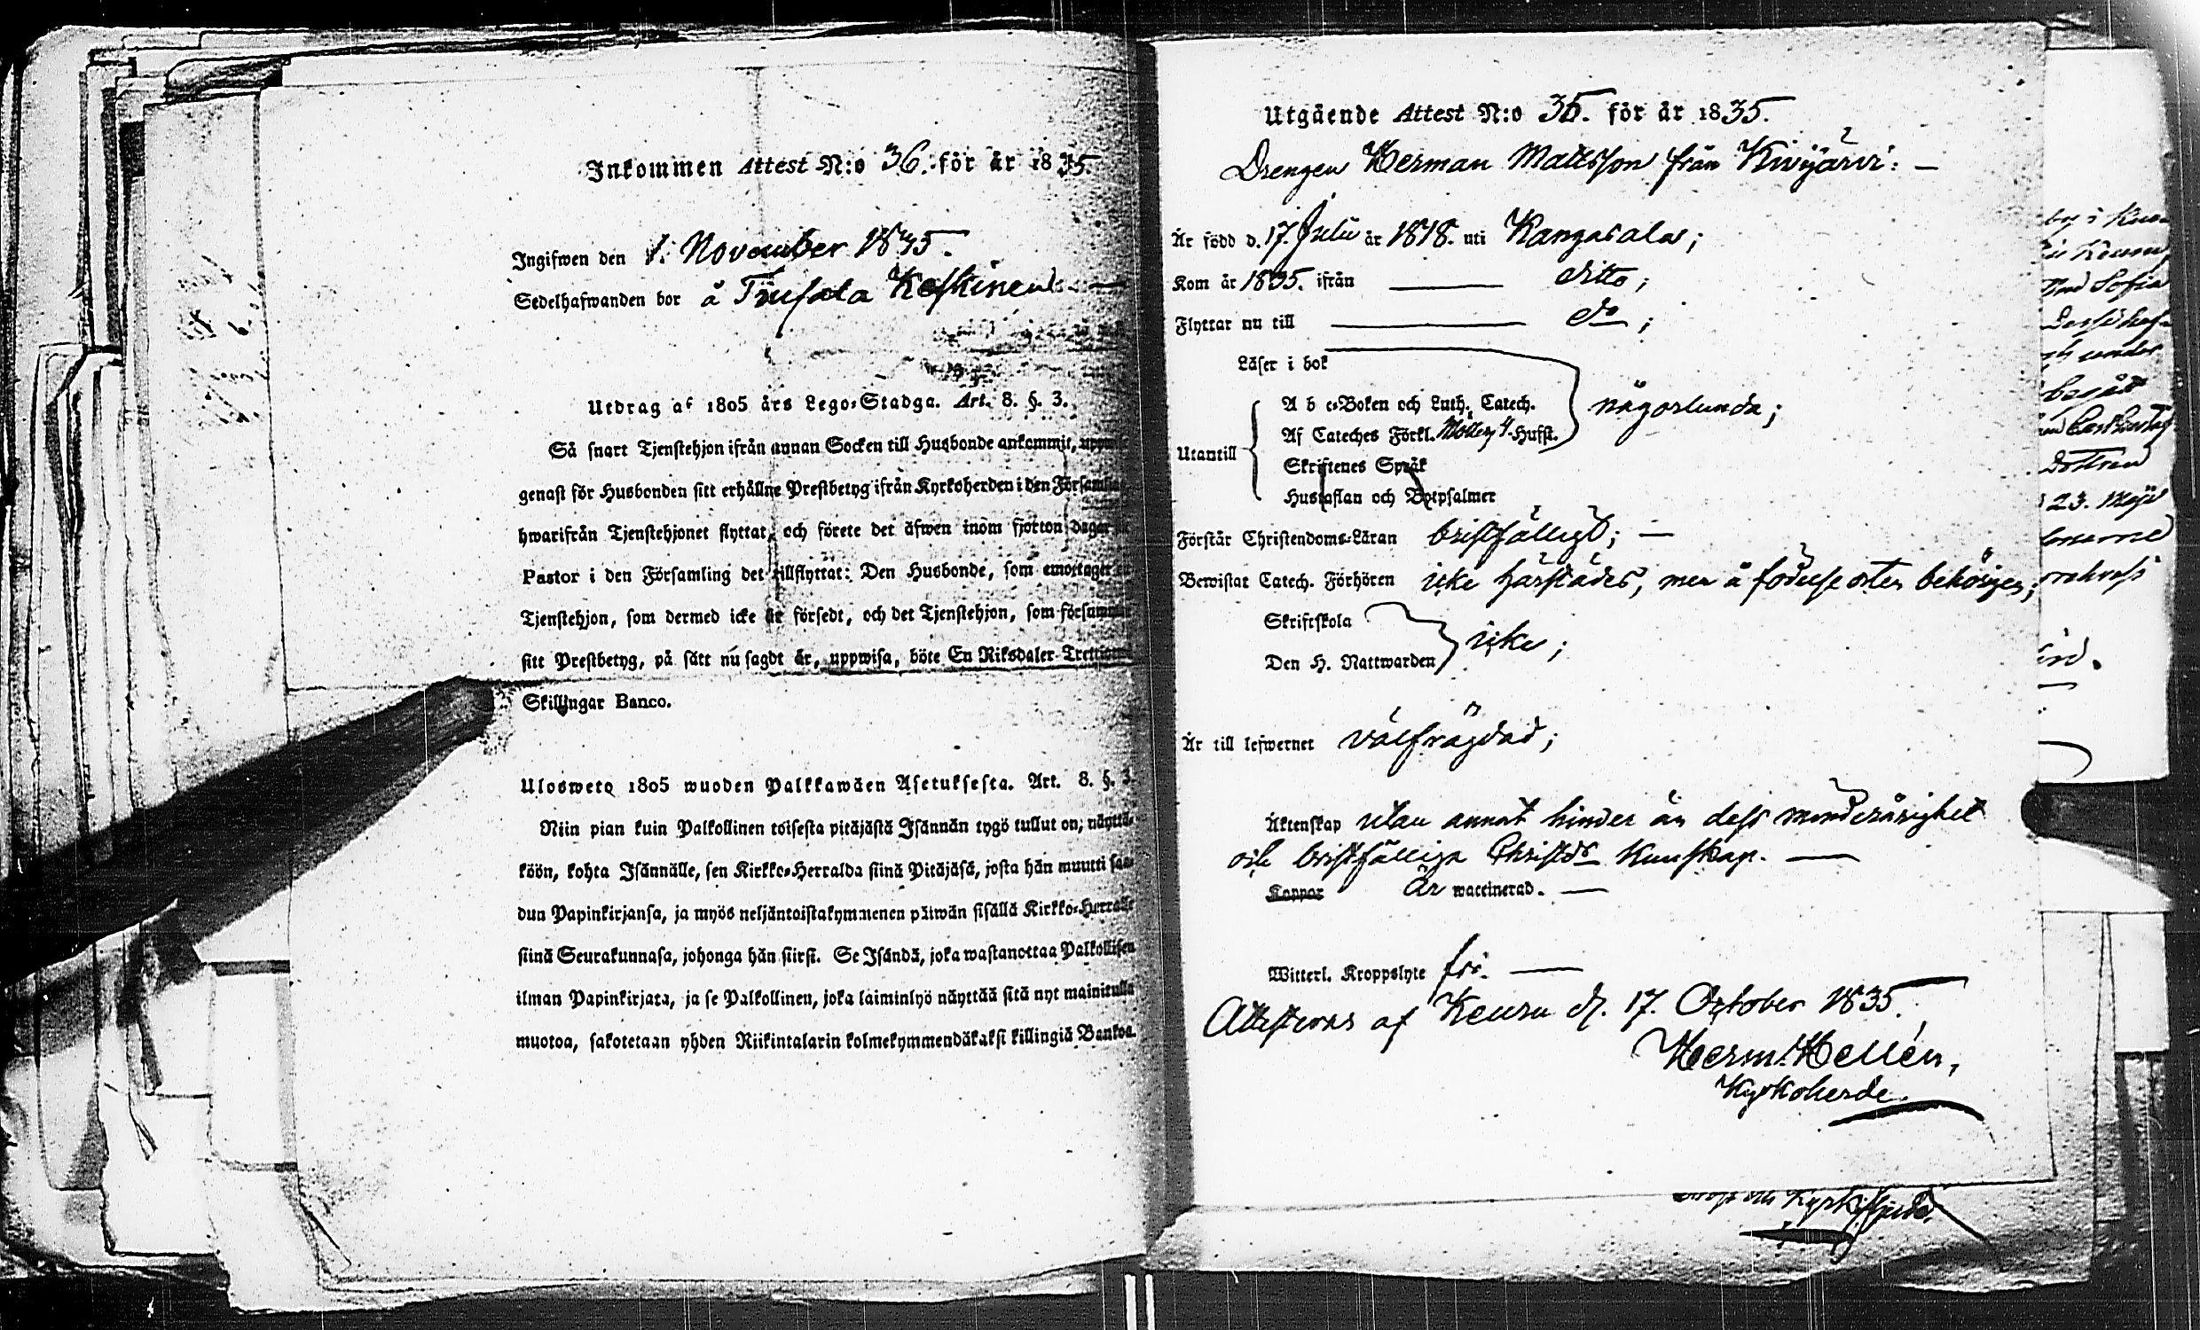 Inkommen Attest N:o 36. för år 1835.
Ingifwen den 1. November 1835.
Sedelhafwanden bor å Keskinen
Utdrag af 1805 års Lego-Stadga. Art. 8. §. 3.
Så snart Tjenstehjon ifrån annan Socken till Husbonde ankommit,
genast för Husbonden sitt erhållne Prestbetyg ifrån Kyrkoherden i den
hwarifrån Tjenstehjonet flyttat, och förete det äfwen inom fjorton dagar
Pastor i den Församling det tillflyttat: Den Husbonde, som emottager
Tjenstehjon, som dermed icke är försedt, och det Tjenstehjon, som
sitt Prestbetyg, på sätt nu sagdt är, uppwisa, böte En Riksdaler
Skillingar Banco.
Ulosweto 1805 wuoden Palkkawäen Asetuksesta. Art. 8. §. 3.
Niin pian kuin Palkollinen toisesta pitäjästä Isännän tygö tullut on, näyttä-
köön, kohta Isännälle, sen Kirkko-Herralda siinä Pitäjäsä, josta hän muutti saa-
dun Papinkirjansa, ja myös neljäntoistakymmenen päiwän sisällä Kirkko-Herralle
siinä Seurakunnasa, johonga hän siirsi. Se Isändä, joka wastanottaa Palkollisen
ilman Papinkirjata, ja se Palkollinen, joka laiminlyö näyttää sitä nyt mainitulla
muotoa, sakotetaan yhden Riikintalarin kolmekymmendäkaksi killingiä Bankoa.
Utgående Attest N:o 35. för år 1835.
Drengen Herman Mattsson från Kivijärvi: —
Är född d. 17. Julii år 1818. uti Kangasala;
Kom år 1835. ifrån — ditto;
Flyttar nu till — do;
Läser i bok
A b c-Boken och Luth. Catech. någorlunda;
Utantill
Af Cateches Förkl. Hufst.
Skriftenes Språk
Hustaflan och Botpsalmer
Förstår Christendoms-Läran bristfälligt; —
Bewistat Catech. Förhören icke härstädes, men å födelse orten behörigen;
Skriftskola
icke;
Den H. Nattwarden
Är till lefwernet välfrägdad;
Äktenskap utan annat hinder än dess minderårighet
och bristfälliga Christds kunskap. —
Koppor Är waccinerad. —
Witterl. Kroppslyte fri. —
Attesteras af Keuru d. 17. October 1835.
Herm. Hellén,
Kyrkoherde.